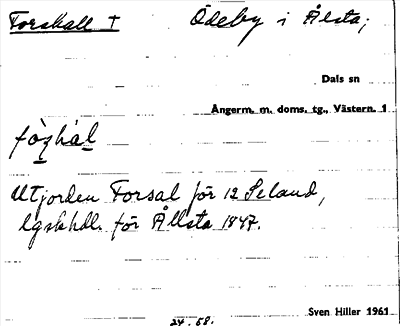 Forskall † Ödeby i Ålsta;
Dals sn
Ångerm. m. doms. tg., Västern. l
Utjorden Forsal för 12 Seland,
lgskhdl. för Ållsta 1847.
Sven Hiller 1961
24. 58.